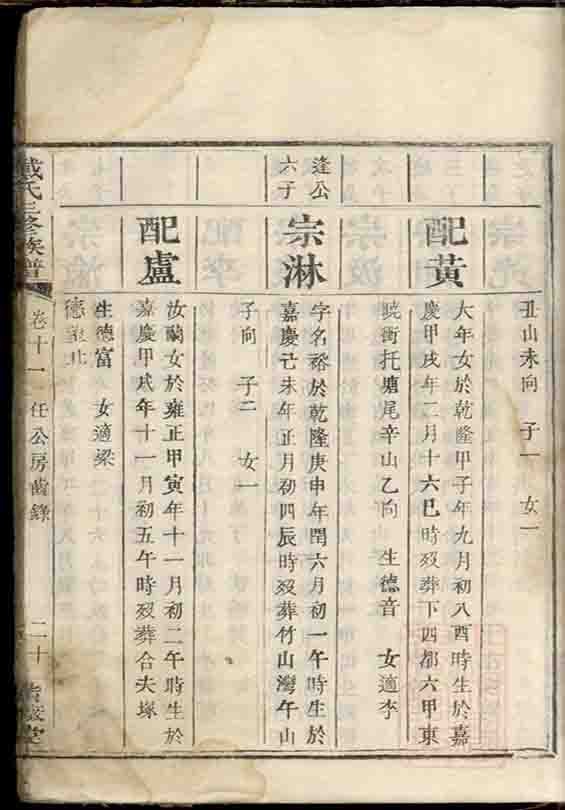 丑山未向 子一 女一
配黃
大年女於乾隆甲子年九月初八酉時生於嘉
慶甲戌年二月十六巳時歿葬下四都六甲東
曉衝托塘尾辛山乙向 生德音 女適李
逢公
六子
宗淋
字名裕於乾隆庚申年閏六月初一午時生於
嘉慶己未年正月初四辰時歿葬竹山灣午山
子向 子二 女一
配盧
汝蘭女於雍正甲寅年十一月初二午時生於
嘉慶甲戌年十一月初五午時歿葬合夫塚
生德富 女適梁
德
戴氏三修族譜
卷十一 任公房齒錄
二十